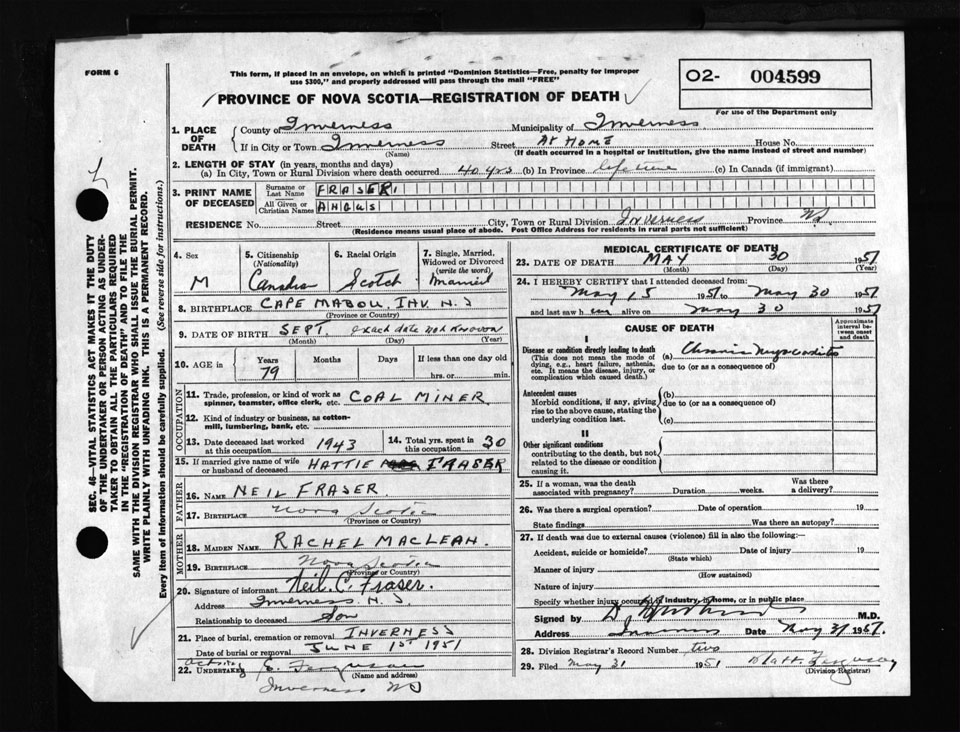 FORM 6
This form, if placed in an envelope, on which is printed "Dominion Statistics—Free, penalty for improper
use $300," and properly addressed will pass through the mail "FREE"
O2- 004599
For use of the Department only
PROVINCE OF NOVA SCOTIA—REGISTRATION OF DEATH
1. PLACE OF DEATH
County of Inverness Municipality of Inverness
If in City or Town Inverness Street At Home House No.
(Name) (If death occurred in a hospital or institution, give the name instead of street and number)
2. LENGTH OF STAY (in years, months and days)
(a) In City, Town or Rural Division where death occurred 40 yrs (b) In Province life time (c) In Canada (if immigrant)
3. PRINT NAME OF DECEASED
Surname or Last Name FRASER
All Given or Christian Names ANGUS
RESIDENCE No. Street City, Town or Rural Division Inverness Province NS
(Residence means usual place of abode. Post Office Address for residents in rural parts not sufficient)
4. Sex M
5. Citizenship (Nationality) Canadian
6. Racial Origin Scotch
7. Single, Married, Widowed or Divorced (write the word) Married
8. BIRTHPLACE CAPE MABOU, INV. N.S
(Province or Country)
9. DATE OF BIRTH SEPT. exact date not known
(Month) (Day) (Year)
10. AGE in Years 79 Months Days If less than one day old hrs. or min.
OCCUPATION
11. Trade, profession, or kind of work as spinner, teamster, office clerk, etc. COAL MINER
12. Kind of industry or business, as cotton-mill, lumbering, bank, etc.
13. Date deceased last worked at this occupation 1943
14. Total yrs. spent in this occupation 30
15. If married give name of wife or husband of deceased HATTIE FRASER
FATHER
16. NAME NEIL FRASER
17. BIRTHPLACE Nova Scotia
(Province or Country)
MOTHER
18. MAIDEN NAME RACHEL MACLEAN.
19. BIRTHPLACE Nova Scotia
(Province or Country)
20. Signature of informant Neil C. Fraser.
Address Inverness N.S
Relationship to deceased Son
21. Place of burial, cremation or removal INVERNESS
Date of burial or removal JUNE 1ST 1951
22. Acting UNDERTAKER E. Ferguson
(Name and address)
Inverness NS
MEDICAL CERTIFICATE OF DEATH
23. DATE OF DEATH MAY 30 1951
(Month) (Day) (Year)
24. I HEREBY CERTIFY that I attended deceased from:
May 15 1951 to May 30 1951
and last saw him alive on May 30 1951
CAUSE OF DEATH
Approximate interval between onset and death
I
Disease or condition directly leading to death
(This does not mean the mode of dying, e.g., heart failure, asthenia, etc. It means the disease, injury, or complication which caused death.)
(a) Chronic Myocarditis
due to (or as a consequence of)
Antecedent causes
Morbid conditions, if any, giving rise to the above cause, stating the underlying condition last.
(b)
due to (or as a consequence of)
(c)
II
Other significant conditions
contributing to the death, but not related to the disease or condition causing it.
25. If a woman, was the death associated with pregnancy? Duration weeks. Was there a delivery?
26. Was there a surgical operation? Date of operation 19
State findings Was there an autopsy?
27. If death was due to external causes (violence) fill in also the following:—
Accident, suicide or homicide? Date of injury 19
(State which)
Manner of injury
(How sustained)
Nature of injury
Specify whether injury in industry, in home, or in public place
Signed by M.D.
Address Inverness Date May 31 1951.
28. Division Registrar's Record Number two
29. Filed May 31 1951 Matt. Ferguson
(Division Registrar)
SEC. 46—VITAL STATISTICS ACT MAKES IT THE DUTY
OF THE UNDERTAKER OR PERSON ACTING AS UNDER-
TAKER TO OBTAIN ALL THE PARTICULARS REQUIRED
IN THE "REGISTRATION OF DEATH" AND TO FILE THE
SAME WITH THE DIVISION REGISTRAR WHO SHALL ISSUE THE BURIAL PERMIT.
WRITE PLAINLY WITH UNFADING INK. THIS IS A PERMANENT RECORD.
Every item of information should be carefully supplied. (See reverse side for instructions.)